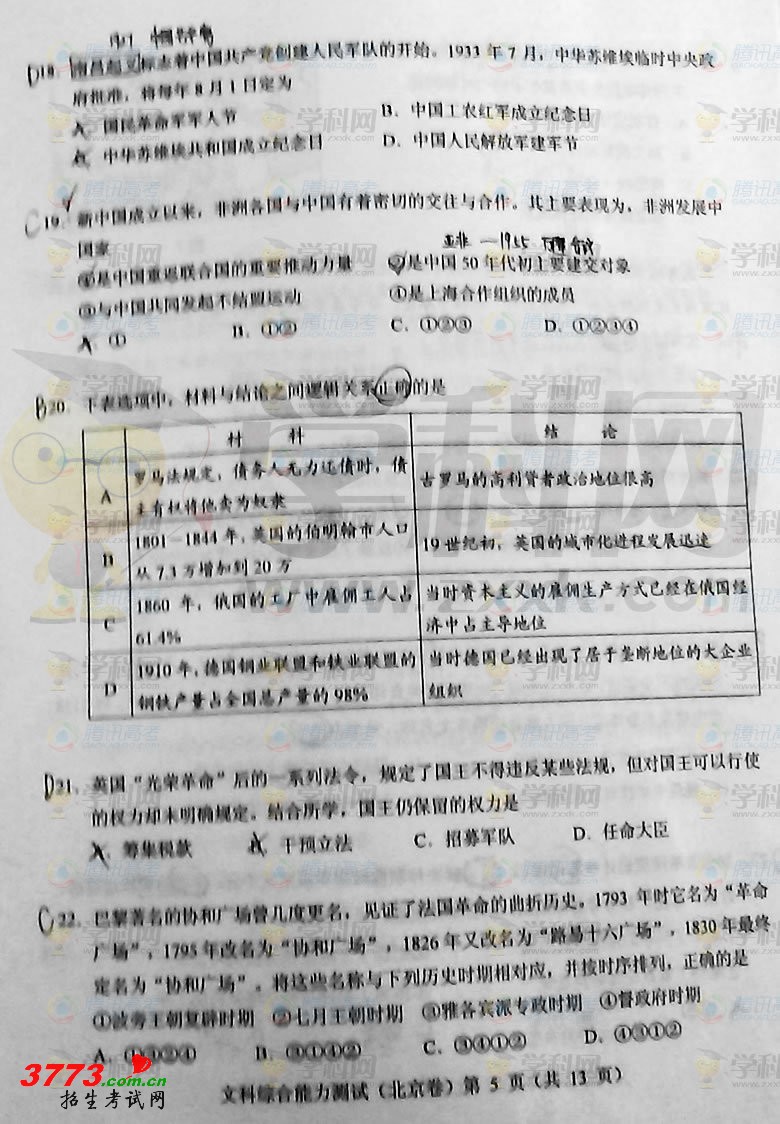 18. 南昌起义标志着中国共产党创建人民军队的开始。1933 年 7 月，中华苏维埃临时中央政
府批准，将每年 8 月 1 日定为
A. 国民革命军军人节 B. 中国工农红军成立纪念日
中华苏维埃共和国成立纪念日 D. 中国人民解放军建军节
C 19. 新中国成立以来，非洲各国与中国有着密切的交往与合作。其主要表现为，非洲发展中
国家
亚非 1955
①是中国重返联合国的重要推动力量 ②是中国 50 年代初主要建交对象
③与中国共同发起不结盟运动 ④是上海合作组织的成员
A. ① B. ①② C. ①②③ D. ①②③④
B 20. 下表选项中，材料与结论之间逻辑关系正确的是
材 料 结 论
A 罗马法规定，债务人无力还债时，债主有权将他卖为奴隶 古罗马的高利贷者政治地位很高
B 1801—1844 年，英国的伯明翰市人口从 7.3 万增加到 20 万 19 世纪初，英国的城市化进程发展迅速
C 1860 年，俄国的工厂中雇佣工人占 61.4% 当时资本主义的雇佣生产方式已经在俄国经济中占主导地位
D 1910 年，德国钢业联盟和铁业联盟的钢铁产量占全国总产量的 98% 当时德国已经出现了居于垄断地位的大企业组织
D 21. 英国“光荣革命”后的一系列法令，规定了国王不得违反某些法规，但对国王可以行使
的权力却未明确规定。结合所学，国王仍保留的权力是
A. 筹集税款 B. 干预立法 C. 招募军队 D. 任命大臣
C 22. 巴黎著名的协和广场曾几度更名，见证了法国革命的曲折历史。1793 年时它名为“革命
广场”，1795 年改名为“协和广场”，1826 年又改名为“路易十六广场”，1830 年最终
定名为“协和广场”。将这些名称与下列历史时期相对应，并按时序排列，正确的是
①波旁王朝复辟时期 ②七月王朝时期 ③雅各宾派专政时期 ④督政府时期
B. ③①④② C. ③④①② D. ④③①②
文科综合能力测试（北京卷）第 5 页（共 13 页）
3773.com
招生考试网
学科网
www.zxxk.com
腾讯高考